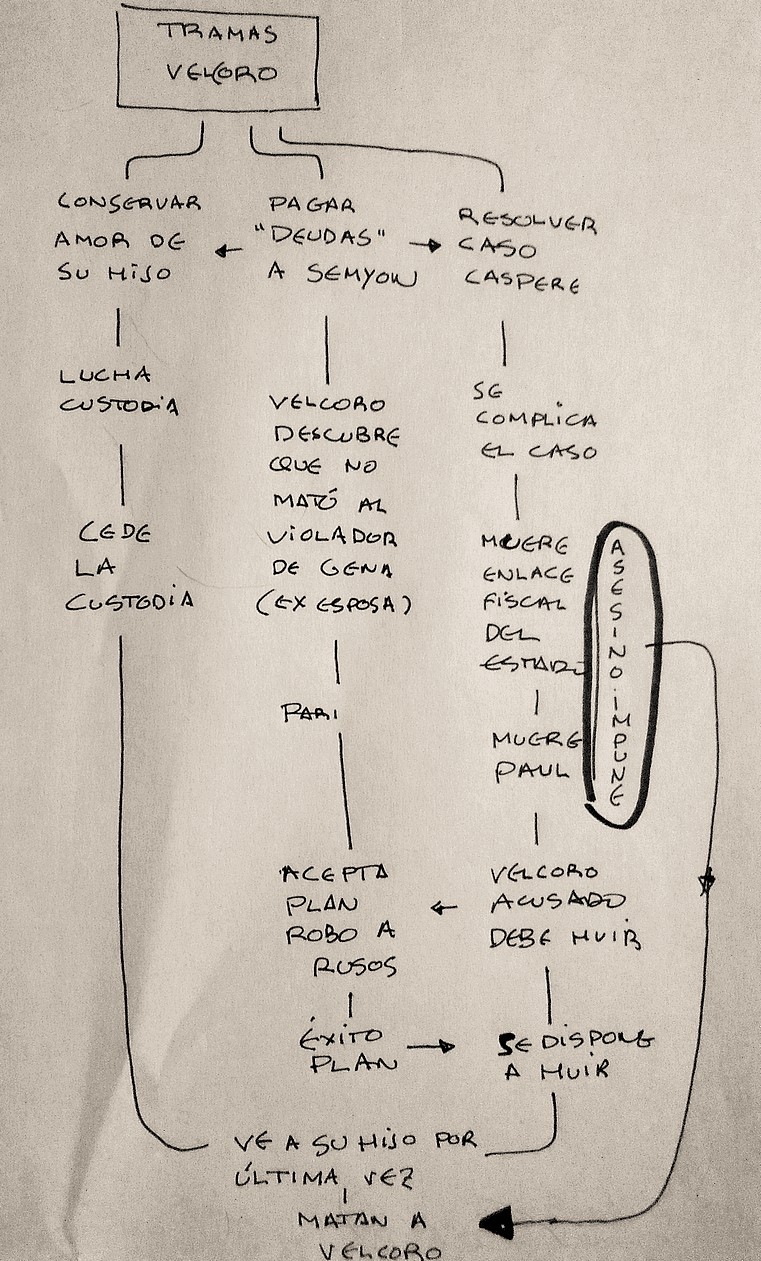 TRAMAS
VELCORO
CONSERVAR
AMOR DE
SU HIJO
LUCHA
CUSTODIA
CEDE
LA
CUSTODIA
PAGAR
"DEUDAS"
A SEMYON
VELCORO
DESCUBRE
QUE NO
MATÓ AL
VIOLADOR
DE GENA
(EX ESPOSA)
ACEPTA
PLAN
ROBO A
RUSOS
ÉXITO
PLAN
RESOLVER
CASO
CASPERE
SE
COMPLICA
EL CASO
MUERE
ENLACE
FISCAL
DEL
ESTADO
MUERE
PAUL
VELCORO
ACUSADO
DEBE HUIR
SE DISPONE
A HUIR
ASESINO IMPUNE
VE A SU HIJO POR
ÚLTIMA VEZ
MATAN A
VELCORO